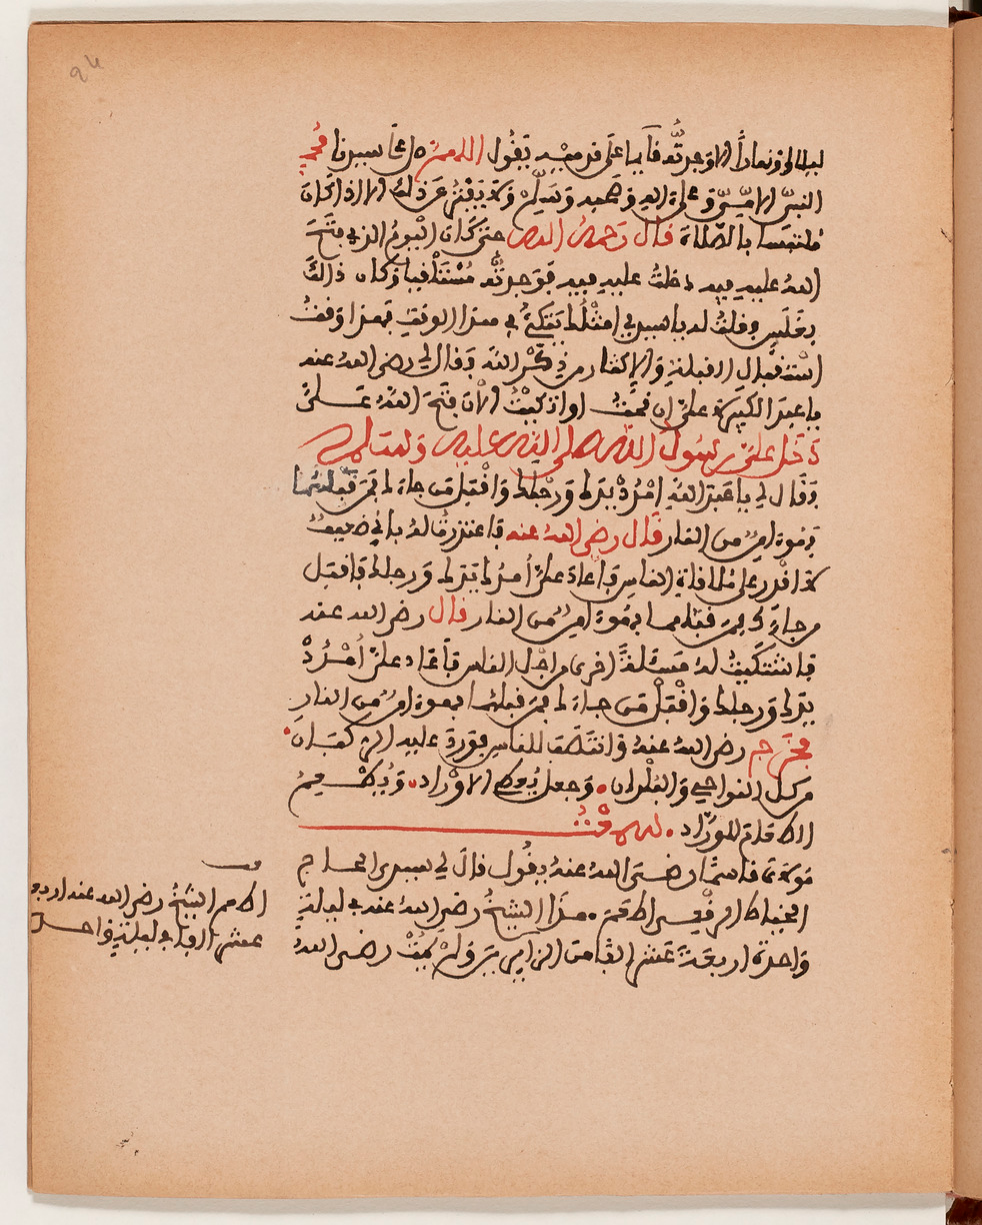 ليلا ونهارا الا وجدته قائما على قدميه يقول اللهم صل على سيدنا محمد
النبي الامي وعلى اله وصحبه وسلم ولا يفتر عن ذلك الا اذا كان
ملتبسا بالصلاة قال رحمه الله حتى كان اليوم الذي فتح
الله عليه فيه دخلت عليه فيه فوجدته مستلقيا وكان ذلك
بغلس وقلت له يا سيدي امثلك يتكئ في هذا الوقت فهذا وقت
استقبال القبلة والاكثار من ذكر الله فقال لي رضي الله عنه
يا عبد الكبير علي ان قمت او اتكيت الان فتح الله علي
دخل علي رسول الله صلى الله عليه وسلم
وقال لي يا عبد الله امدد يدك ورجلك واقبل من جاءك فمن قبلهما
فهو امن من النار قال رضي الله عنه فاعتذرت له باني ضعيف
لا اقدر على ملاقاة الناس فاعاد علي امدد يدك ورجلك واقبل
من جاءك فمن قبلهما فهو امن من النار قال رضي الله عنه
فاشتكيت له مسئلة اخرى من اجل الناس فاعاد علي امدد
يدك ورجلك واقبل من جاءك فمن قبلهما فهو امن من النار
فخرج رضي الله عنه وانتصب للناس فورد عليه الركبان
من كل النواحي والبلدان وجعل يعطي الاوراد ويطعم
الطعام للوراد
رضي الله عنه يقول قال لي سيدي الحاج
الخياط الرقعي اطعم هذا الشيخ رضي الله عنه في ليلة
واحدة اربعة عشر الفا من الزايرين ولم يبت رضي الله
اطعم الشيخ رضي الله عنه اربعة
عشر الفا في ليلة واحدة